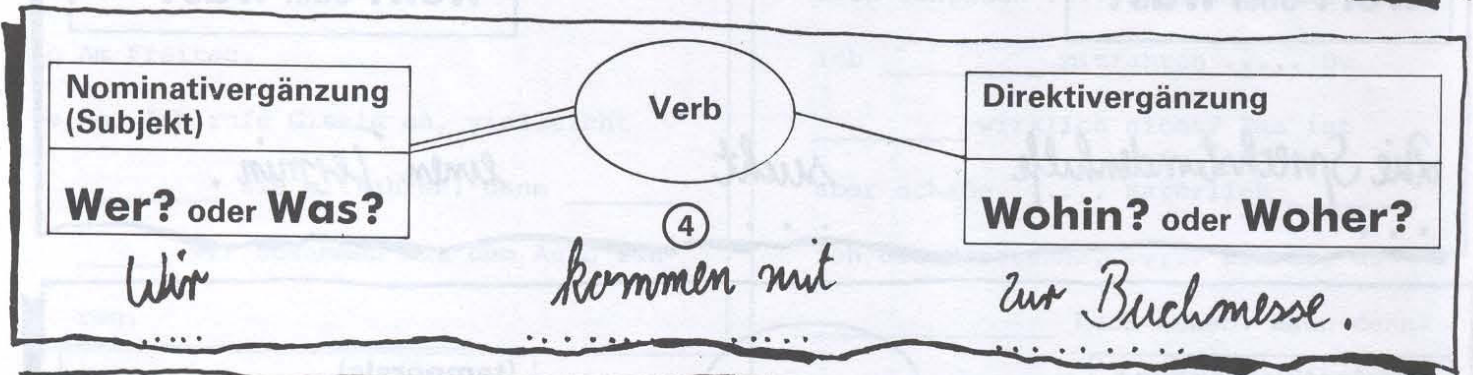 Nominativergänzung
(Subjekt)
Wer? oder Was?
Verb
4
Direktivergänzung
Wohin? oder Woher?
Wir kommen mit zur Buchmesse.